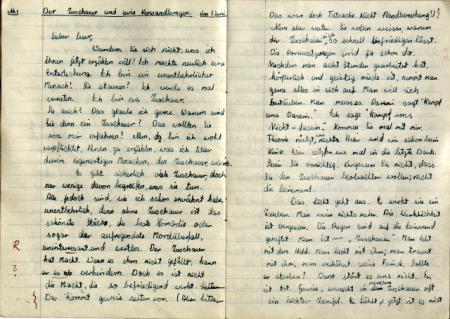 Der Zuschauer und seine Verwandlungen.
Lieber Leser,
Wundern Sie sich nicht, was ich
Ihnen jetzt erzählen will! Ich machte neulich eine
Entdeckung. Ich bin ein unentbehrlicher
Mensch! Sie staunen? Ich werde es mal
verraten. Ich bin ein Zuschauer.
Sie auch! Das glaube ich gerne. Warum sind
Sie denn ein Zuschauer? Das wollen Sie
von mir erfahren? Nun, da bin ich wohl
verpflichtet, Ihnen zu erzählen, was ich über
diesen eigenartigen Menschen, den Zuschauer, weiss.
Es gibt sicherlich viele Zuschauer, doch
nur wenige davon begreifen, was sie tun.
Alle jedoch sind, wie ich schon erwähnt habe,
unentbehrlich, denn ohne Zuschauer ist das
schönste Stück, die beste Komödie oder
sogar der aufregendste Mordüberfall,
uninteressant und wertlos. Der Zuschauer
R hat Macht. Wenn es ihm nicht gefällt, kann
? er es verhindern. Doch es ist nicht
die Macht, die so befriedigend wirkt.
Das kommt gewiss selten vor. (Aber bitte,
Das war doch Tatsache. Nicht Randbemerkung!)
Nun aber weiter. Sie wollen wissen, warum
der Zuschauer so schnell befriedigen lässt.
Die Voraussetzungen sind ja schon da.
Nachdem man acht Stunden gearbeitet hat,
körperlich und geistig müde ist, nimmt man
gerne alles in sich auf. Man will sich
betäuben. Man muss es. Darwin sagt "Kampf
ums Dasein". Ich sage "Kampf ums
Nicht-dasein". Kommen Sie mal mit mir.
Theorie nützt nichts. Hier sind wir schon beim
Kino. Wir setzen uns mal in die letzte Bank.
Seien Sie vorsichtig. Vergessen Sie nicht, dass
Sie den Zuschauer beobachten wollen, nicht
die Leinwand.
Das Licht geht aus. Es wirkt wie ein
Zauber. Man weiss nichts mehr. Die Wirklichkeit
ist vergessen. Die Augen sind auf die Leinwand
gerichtet. Man ist — Zuschauer. Man lebt
mit dem Held. Man lacht mit ihm, man trauert
mit ihm, man verhöhnt seine Feinde. Sollte
er sterben? Dann stört es uns nicht. Er
ist tot. Gewiss, erwacht in dem Zuschauer oft
ein leichter Zweifel. Er fühlt, jetzt ist es mit